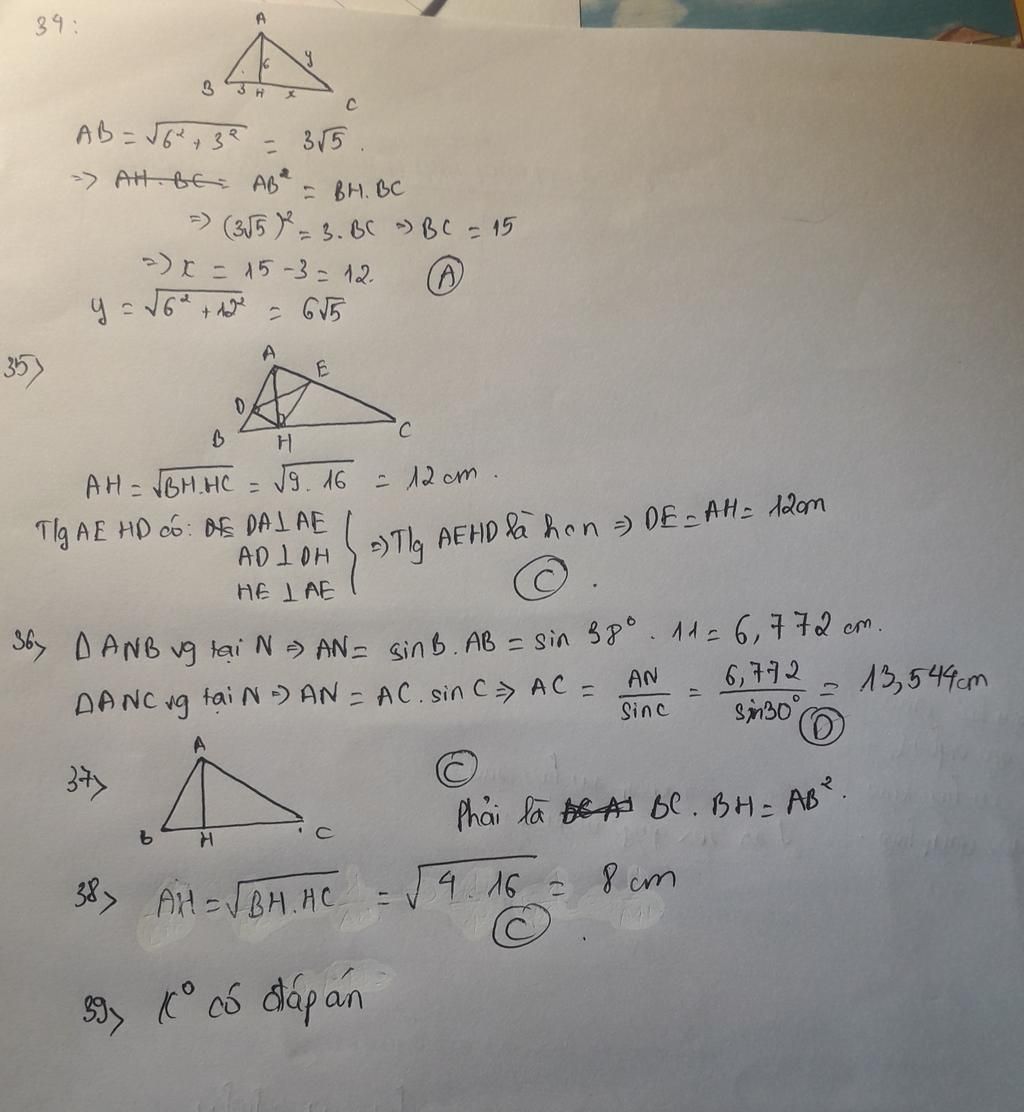 34:
A
6 y
B 3 H x C
AB = √6² + 3² = 3√5.
=> AH . BC = AB² = BH.BC
=> (3√5)² = 3.BC => BC = 15
=> x = 15 - 3 = 12. A
y = √6² + 12² = 6√5
35>
A E
D
B H C
AH = √BH.HC = √9.16 = 12 cm.
T/g AEHD có: DE DA ⊥ AE
AD ⊥ DH
HE ⊥ AE
=> T/g AEHD là hcn => DE = AH = 12cm
C.
36> ΔANB vg tại N => AN = sinB.AB = sin 38° . 11 = 6,772 cm.
ΔANC vg tại N => AN = AC.sinC => AC = AN/sinC = 6,772/sin30° = 13,544cm
D
37> A C
B H C
Phải là BC.AH BC.BH = AB².
38> AH = √BH.HC = √4.16 = 8 cm
C.
39> K° có đáp án